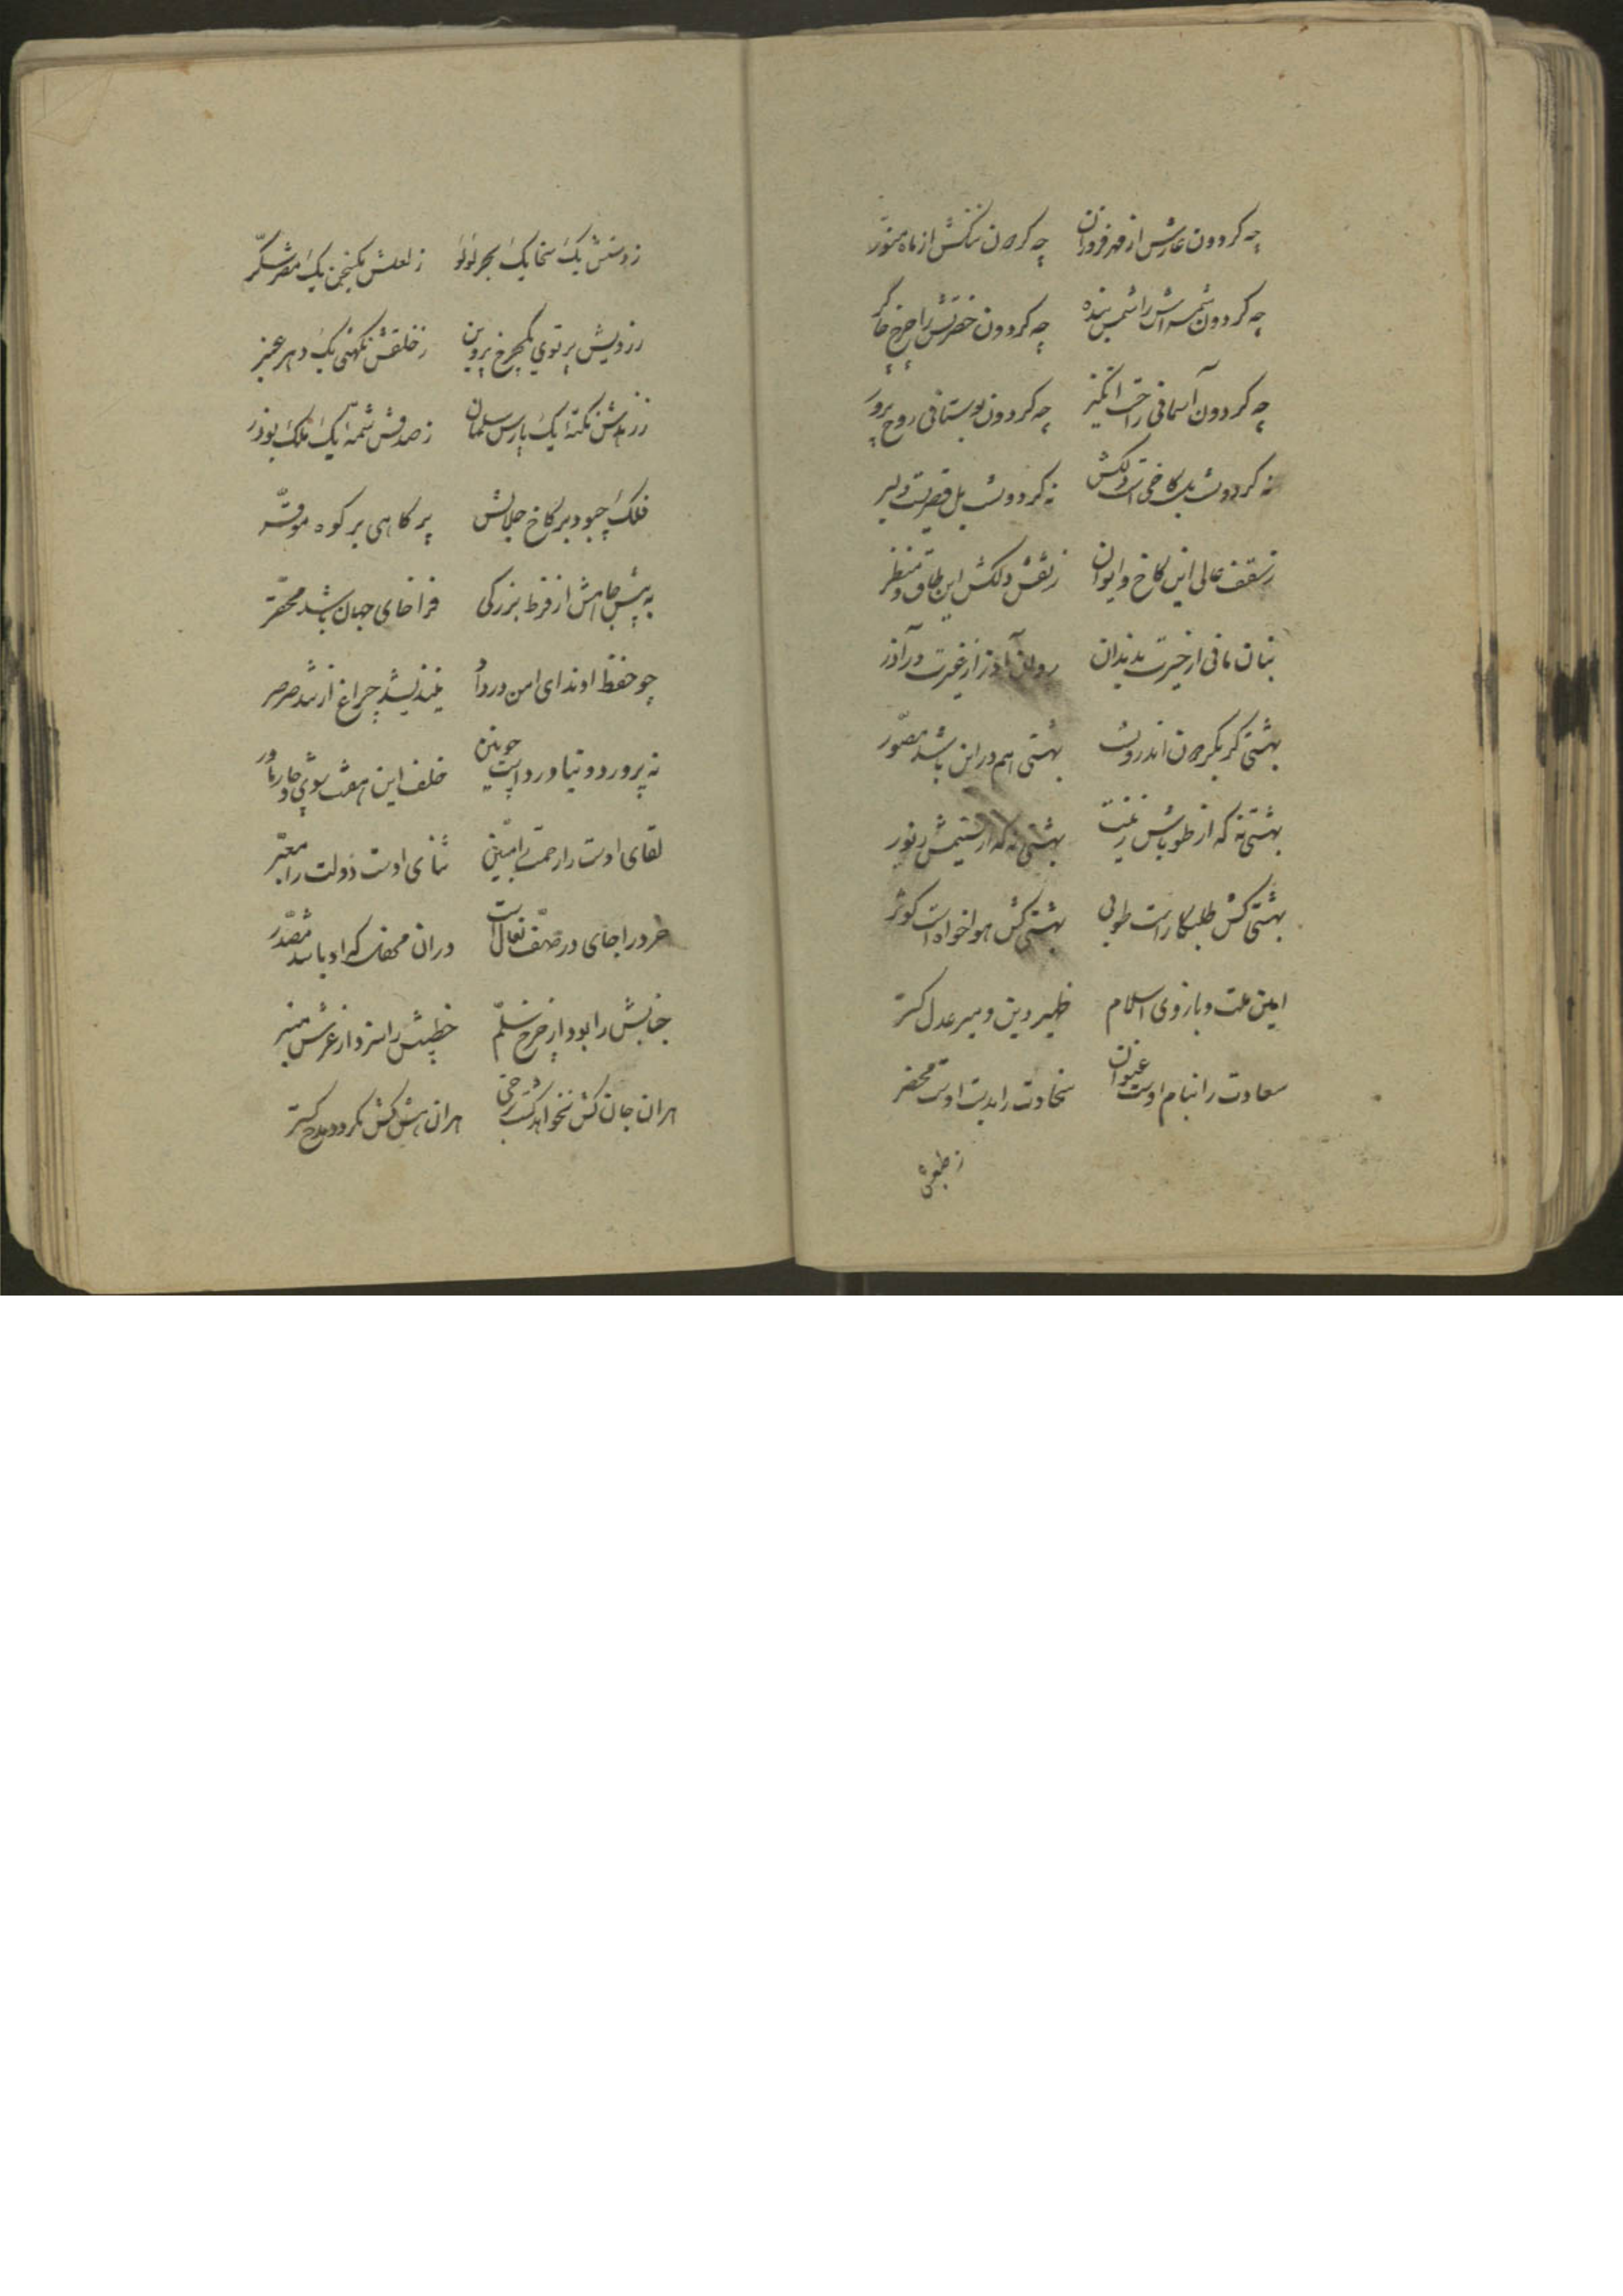 چه کردون عارش از مهر فروزان چه کردون سنکش از ماه منور
چه کردون شمسه اش را شمس بنده چه کردون حضرتش را چرخ چاکر
چه کردون آسمانی راحت انکیز چه کردون بوستانی روح پرور
نه کردونست بل کاخی است دلکش نه کردونست بل قصریست دلبر
ز سقف عالی این کاخ و ایوان ز نقش دلکش این طاق و منظر
بنان مانی از حیرت بدندان روان آذر از غیرت در آذر
بهشتی کر بکردون اندرونست بهشتی هم در این باشد مصور
بهشتی نه که از طوباش زینت بهشتی نه که از تسنیمش زیور
بهشتی کش طلبکار است طوبی بهشتی کش هواخواه است کوثر
امین ملت و بازوی اسلام ظهیر دین و میر عدل کستر
سعادت را بنام اوست عنوان سخاوت را بدست اوست محضر
ز دستش یک سخا یک بحر لؤلؤ ز لعلش یک سخن یک مصر شکر
ز رویش پرتوی یک چرخ پروین ز خلقش نکهتی یک دهر عنبر
ز زهدش نکتهٔ یک پارس سلمان ز صدقش شمهٔ یک ملک بوذر
فلک چبود بر کاخ جلالش پر کاهی بر کوه موقر
به پیش جاهش از فرط بزرکی فراخای جهان باشد محقر
چو حفظ او ندای امن در داد نیندیشد چراغ از تند صرصر
نه پرورد و نیاورد است چونین خلف این هفت شوی و چار مادر
لقای اوست را رحمت امین ثنای اوست دولت را معبر
خرد را جای در صف نعال است در ان محفل که او باشد مصدر
جنابش را بود از چرخ سلم خطیبش را سزد از عرش منبر
هران جان کش نخواهد کشت هران هش کش نکردد مدح کستر